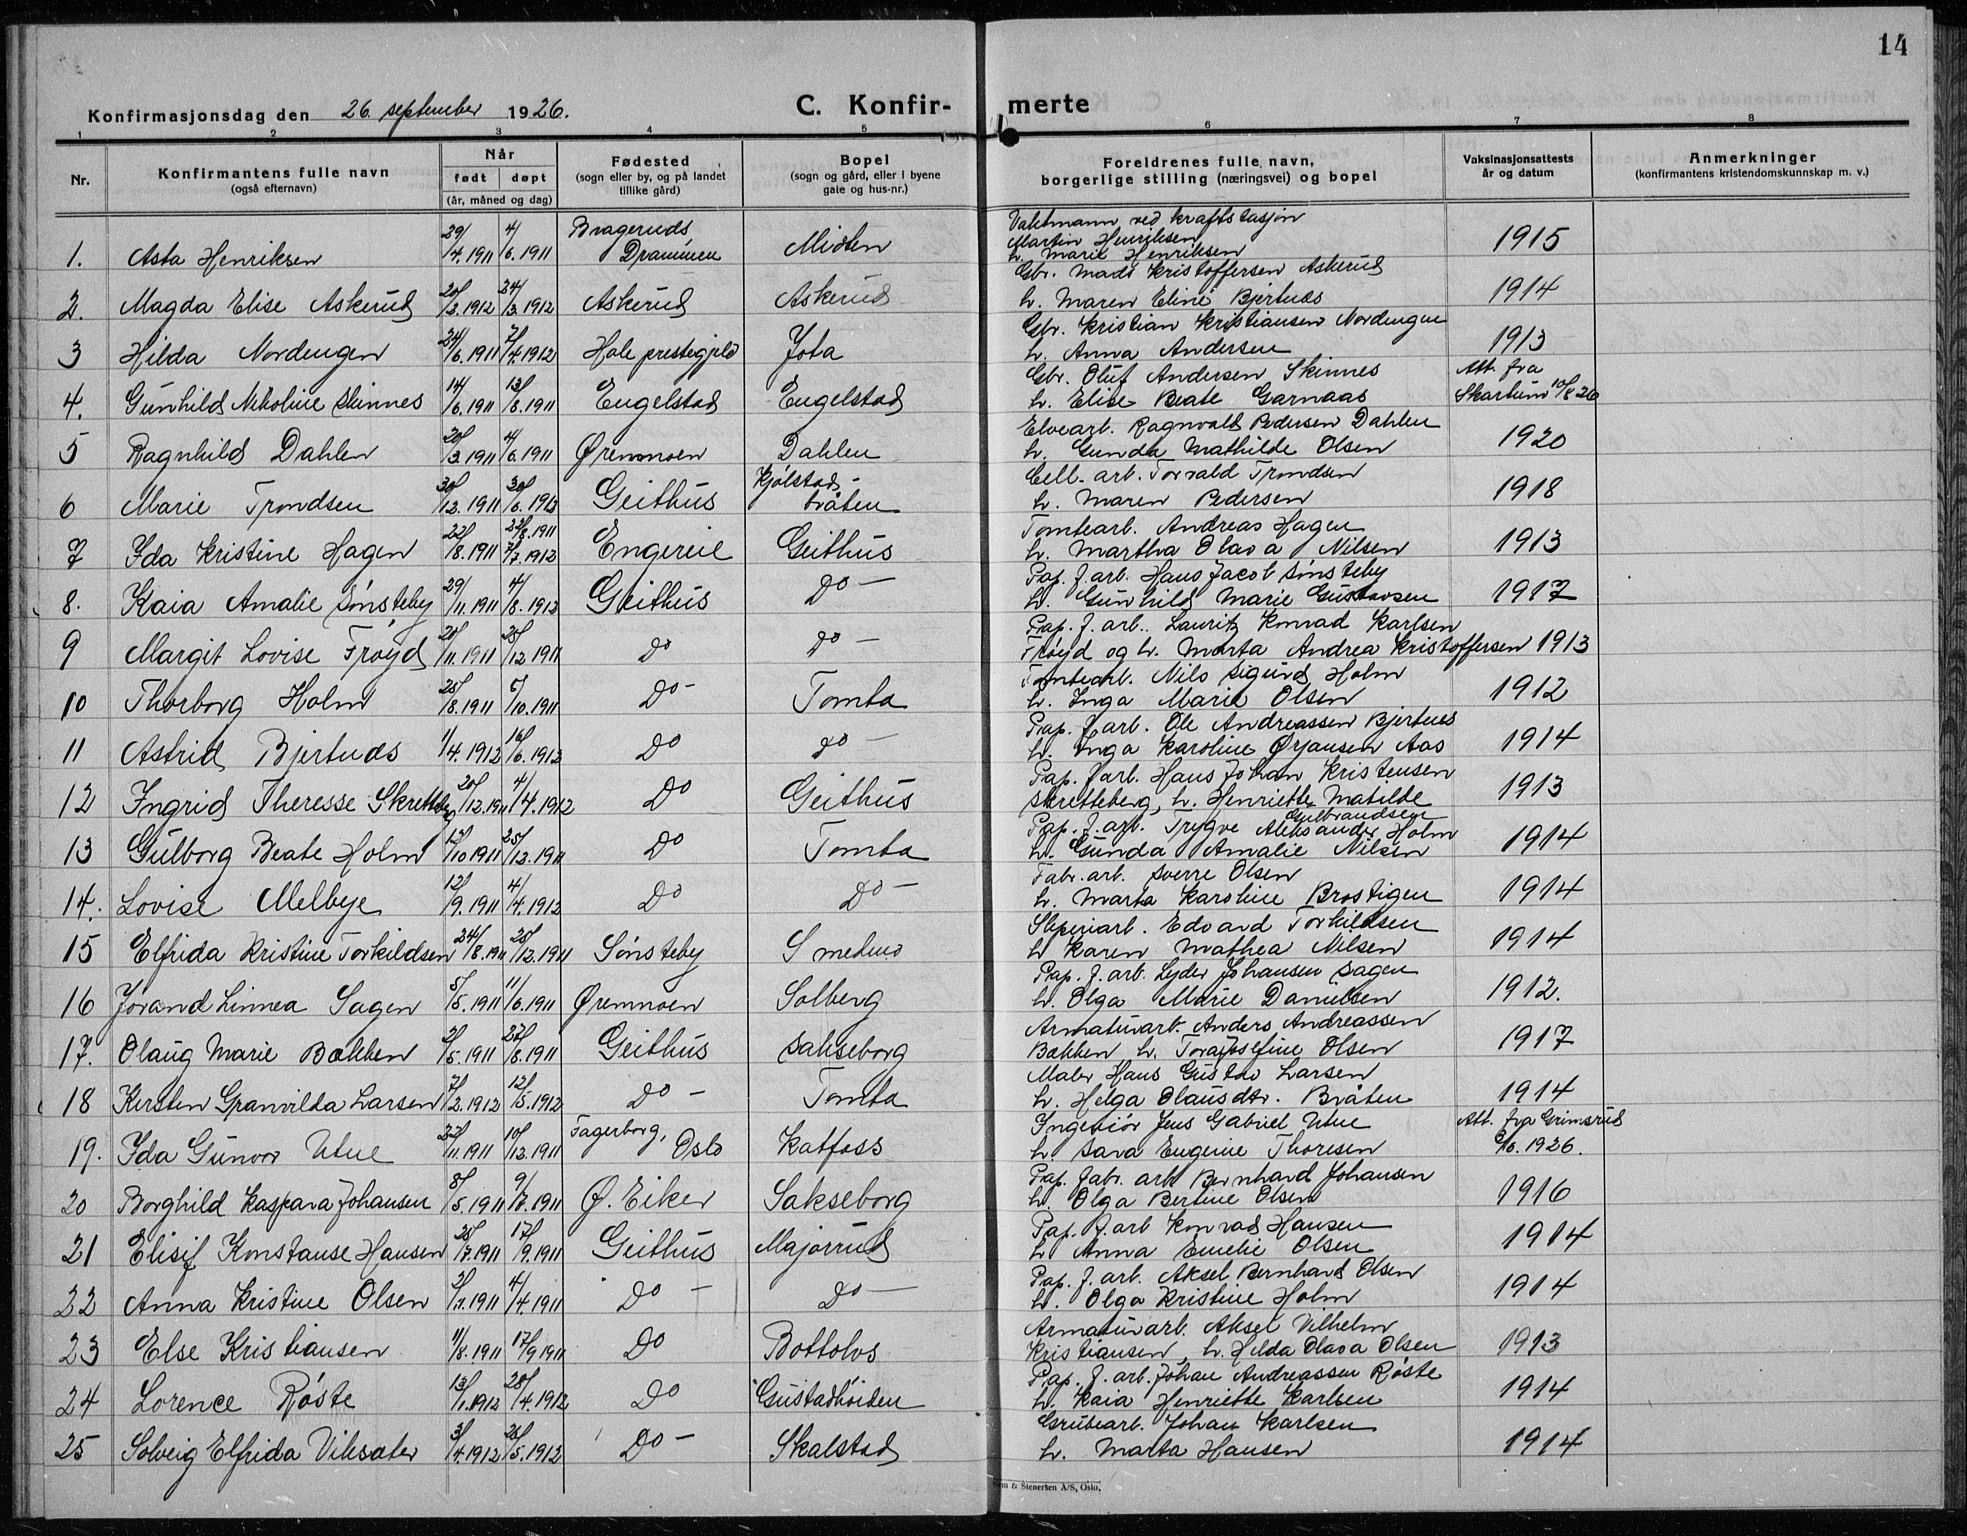 14
Konfirmasjonsdag den 26. september 1926.
C. Konfir- merte
1 2 3 4 5 6 7 8
Nr.
Konfirmantens fulle navn
(også efternavn)
Når
født døpt
(år, måned og dag)
Fødested
(sogn eller by, og på landet
tillike gård)
Bopel
(sogn og gård, eller i byene
gate og hus-nr.)
Foreldrenes fulle navn,
borgerlige stilling (næringsvei) og bopel
Vaksinasjonsattests
år og datum
Anmerkninger
(konfirmantens kristendomskunnskap m. v.)
1. Asta Henriksen 29/4.1911 4/6.1911 Drammen Vaktmann ved kraftstasjon Martin Henriksen h. Marie Henriksen 1915
2. Magda Elise Askerud /3.1912 24/3.1912 Askerud Askerud Gbr. Mads Kristoffersen Askerud h. Maren Eline Bjertnæs 1914
3 Hilda Nordengen 24/6.1911 7/4.1912 Hole prestegjeld Gbr. Kristian Kristiansen Nordengen h. Anna Andersen 1913
4. Gunhild Nikoline Skinnes 14/6.1911 13/8.1911 Engelstad Engelstad Gbr. Oluf Andersen Skinnes h. Elise Beate Garnaas Att. fra Skartum 10/8 26
5 Ragnhild Dahlen 20/3.1911 4/6.1911 Øremoen Dahlen Elvearb. Ragnvald Pedersen Dahlen h. Gunda Mathilde Olsen 1920
6 Marie Trondsen 30/12.1911 30/6.1912 Geithus Kjølstad-bråten Cell.-arb. Torvald Trondsen h. Maren Pedersen 1918
7 Ida Kristine Hagen 22/8.1911 /7.1912 Geithus Tomtearb. Andreas Hagen h. Martha Olava Nilsen 1913
8. Kaia Amalie Sønsteby 29/11.1911 4/8.1912 Geithus Do — Pap. f. arb. Hans Jacob Sønsteby h. Gunhild Marie Gustavsen 1917
9 Margit Lovise Frøyd 20/11.1911 25/12.1911 Do Do — Pap. f. arb. Lauritz Konrad Karlsen Frøyd og h. Marta Andrea Kristoffersen 1913
10 Thorborg Holm 25/8.1911 /10.1911 Do - Tomta Tomtearb. Nils Sigurd Holm h. Inga Marie Olsen 1912
11 Astrid Bjertnæs 1/4.1912 16/6.1912 Do Do — Pap. f. arb. Ole Andreassen Bjertnes h. Inga Karoline Ørjansen Aas 1914
12 Ingrid Theresse Skretteberg 20/12.1911 4/4.1912 Do Geithus Pap. f. arb. Hans Johan Kristensen Skretteberg, h. Henriette Matilde Gulbrandsen 1913
13 Gulborg Beate Holm 12/10 1911 25/12.1911 Do Tomta Pap. f. arb. Trygve Aleksander Holm h. Gunda Amalie Nilsen 1914
14. Lovise Melbye 12/9.1911 4/4.1912 Do Do — Fabr. arb. Sverre Olsen h. Marta Karoline Brostigen 1914
15 Elfrida Kristine Torkildsen 24/8.1911 25/12.1911 Sønsteby Smedmo Sliperiarb. Edvard Torkildsen h Karen Mathea Nilsen 1914
16 Jorand Linnea Sagen 5/5.1911 11/6.1911 Øremoen Solberg Pap. f. arb. Lyder Johansen Sagen h. Olga Marie Danielsen 1912.
17. Olaug Marie Bakken 2/5.1911 27/8.1911 Geithus Sakseborg Armaturarb. Anders Andreassen Bakken h. Tora Josefine Olsen 1917
18 Kersten Granvilda Larsen 7/2.1912 12/5.1912 Do - Tomta Maler Hans Gustav Larsen h. Helga Olausdtr. Bråten 1914
19. Ida Gunvor Utne 22/11.1911 10/12.1911 Fagerborg, Oslo Katfoss Ingeniør Jens Gabriel Utne h Sara Eugenie Thoresen Att. fra Grimsrud 1926.
20 Borghild Kaspara Johansen 8/5.1911 9/7.1911 Ø. Eiker Sakseborg Pap. fabr. arb. Bernhard Johansen h. Olga Bertine Olsen 1916
21 Elisif Konstanse Hansen 25/7.1911 17/9.1911 Geithus Majorrud Pap. f. arb Konrad Hansen h Anna Emelie Olsen 1914
22 Anna Kristine Olsen 2/1.1911 4/4.1911 Do - Do — Pap. f. arb. Aksel Bernhard Olsen h. Olga Kristine Holm 1914
23 Else Kristiansen 11/8.1911 17/9 1911 Do Bottolvs Armaturarb. Aksel Vilhelm Kristiansen, h. Hilda Olava Olsen 1913
24 Lorence Røste 13/1.1912 28/4.1912 Do Gustadhøiden Pap. f. arb. Johan Andreassen Røste h. Kaia Henriette Karlsen 1914
25 Solveig Elfrida Viksæter 3/4.1912 26/5.1912 Do - Skalstad Grubearb. Johan Karlsen h. Marta Hansen 1914
& Stenersen A/S, Oslo.